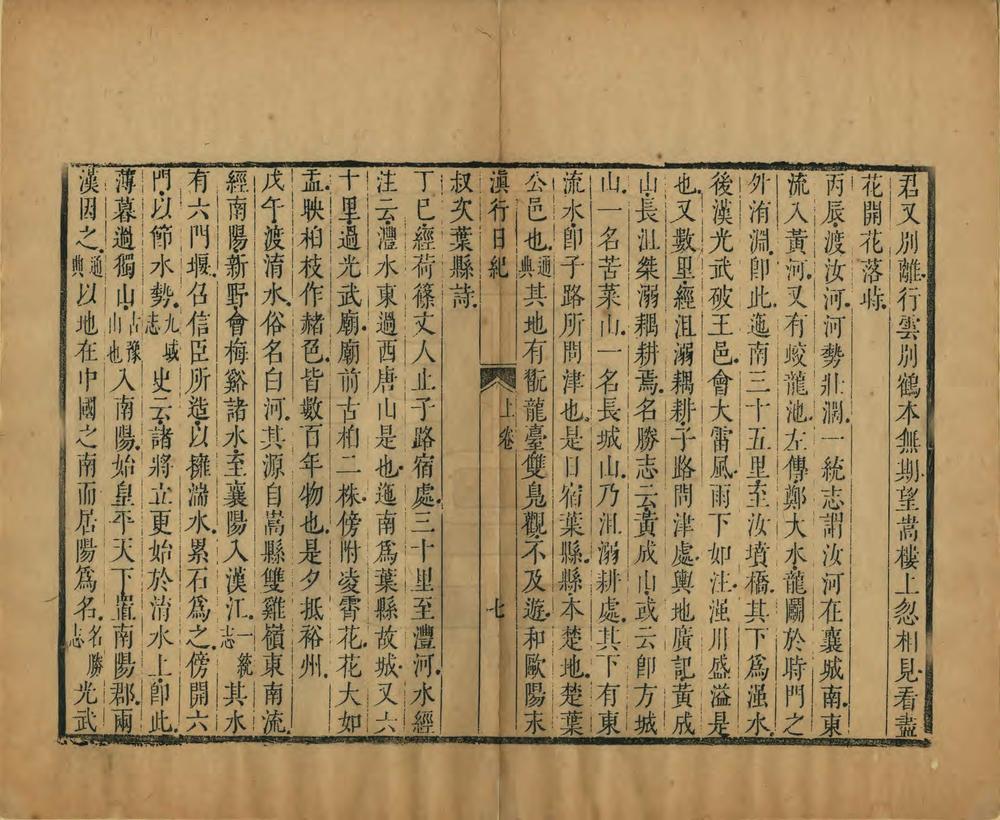 君又別離行雲別鶴本無期望嵩樓上忽相見看盡
花開花落時
丙辰渡汝河河勢壯濶一統志謂汝河在襄城南東
流入黃河又有蛟龍池左傳鄭大水龍鬭於時門之
外洧淵卽此迤南三十五里至汝墳橋其下爲滍水
後漢光武破王邑會大雷風雨下如注滍川盛溢是
也又數里經沮溺耦耕子路問津處輿地廣記黃成
山長沮桀溺耦耕焉名勝志云黃成山或云卽方城
山一名苦菜山一名長城山乃沮溺耕處其下有東
流水卽子路所問津也是日宿葉縣縣本楚地楚葉
公邑也通典其地有翫龍臺雙鳧觀不及遊和歐陽末
滇行日紀 上卷 七
叔次葉縣詩
丁巳經荷篠丈人止子路宿處三十里至灃河水經
注云灃水東過西唐山是也迤南爲葉縣故城又六
十里過光武廟廟前古柏二株傍附凌霄花花大如
盂映柏枝作赭色皆數百年物也是夕抵裕州
戊午渡淯水俗名白河其源自嵩縣雙雞嶺東南流
經南陽新野會梅谿諸水至襄陽入漢江一統志其水
有六門堰召信臣所造以擁湍水累石爲之傍開六
門以節水勢九域志史云諸將立更始於淯水上卽此
薄暮過獨山古豫山也入南陽始皇平天下置南陽郡兩
漢因之通典以地在中國之南而居陽爲名名勝志光武